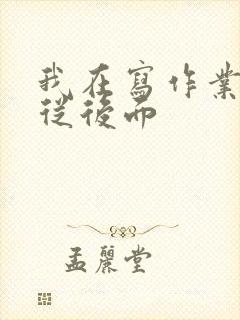 我在寫作業
從後面
孟麗堂